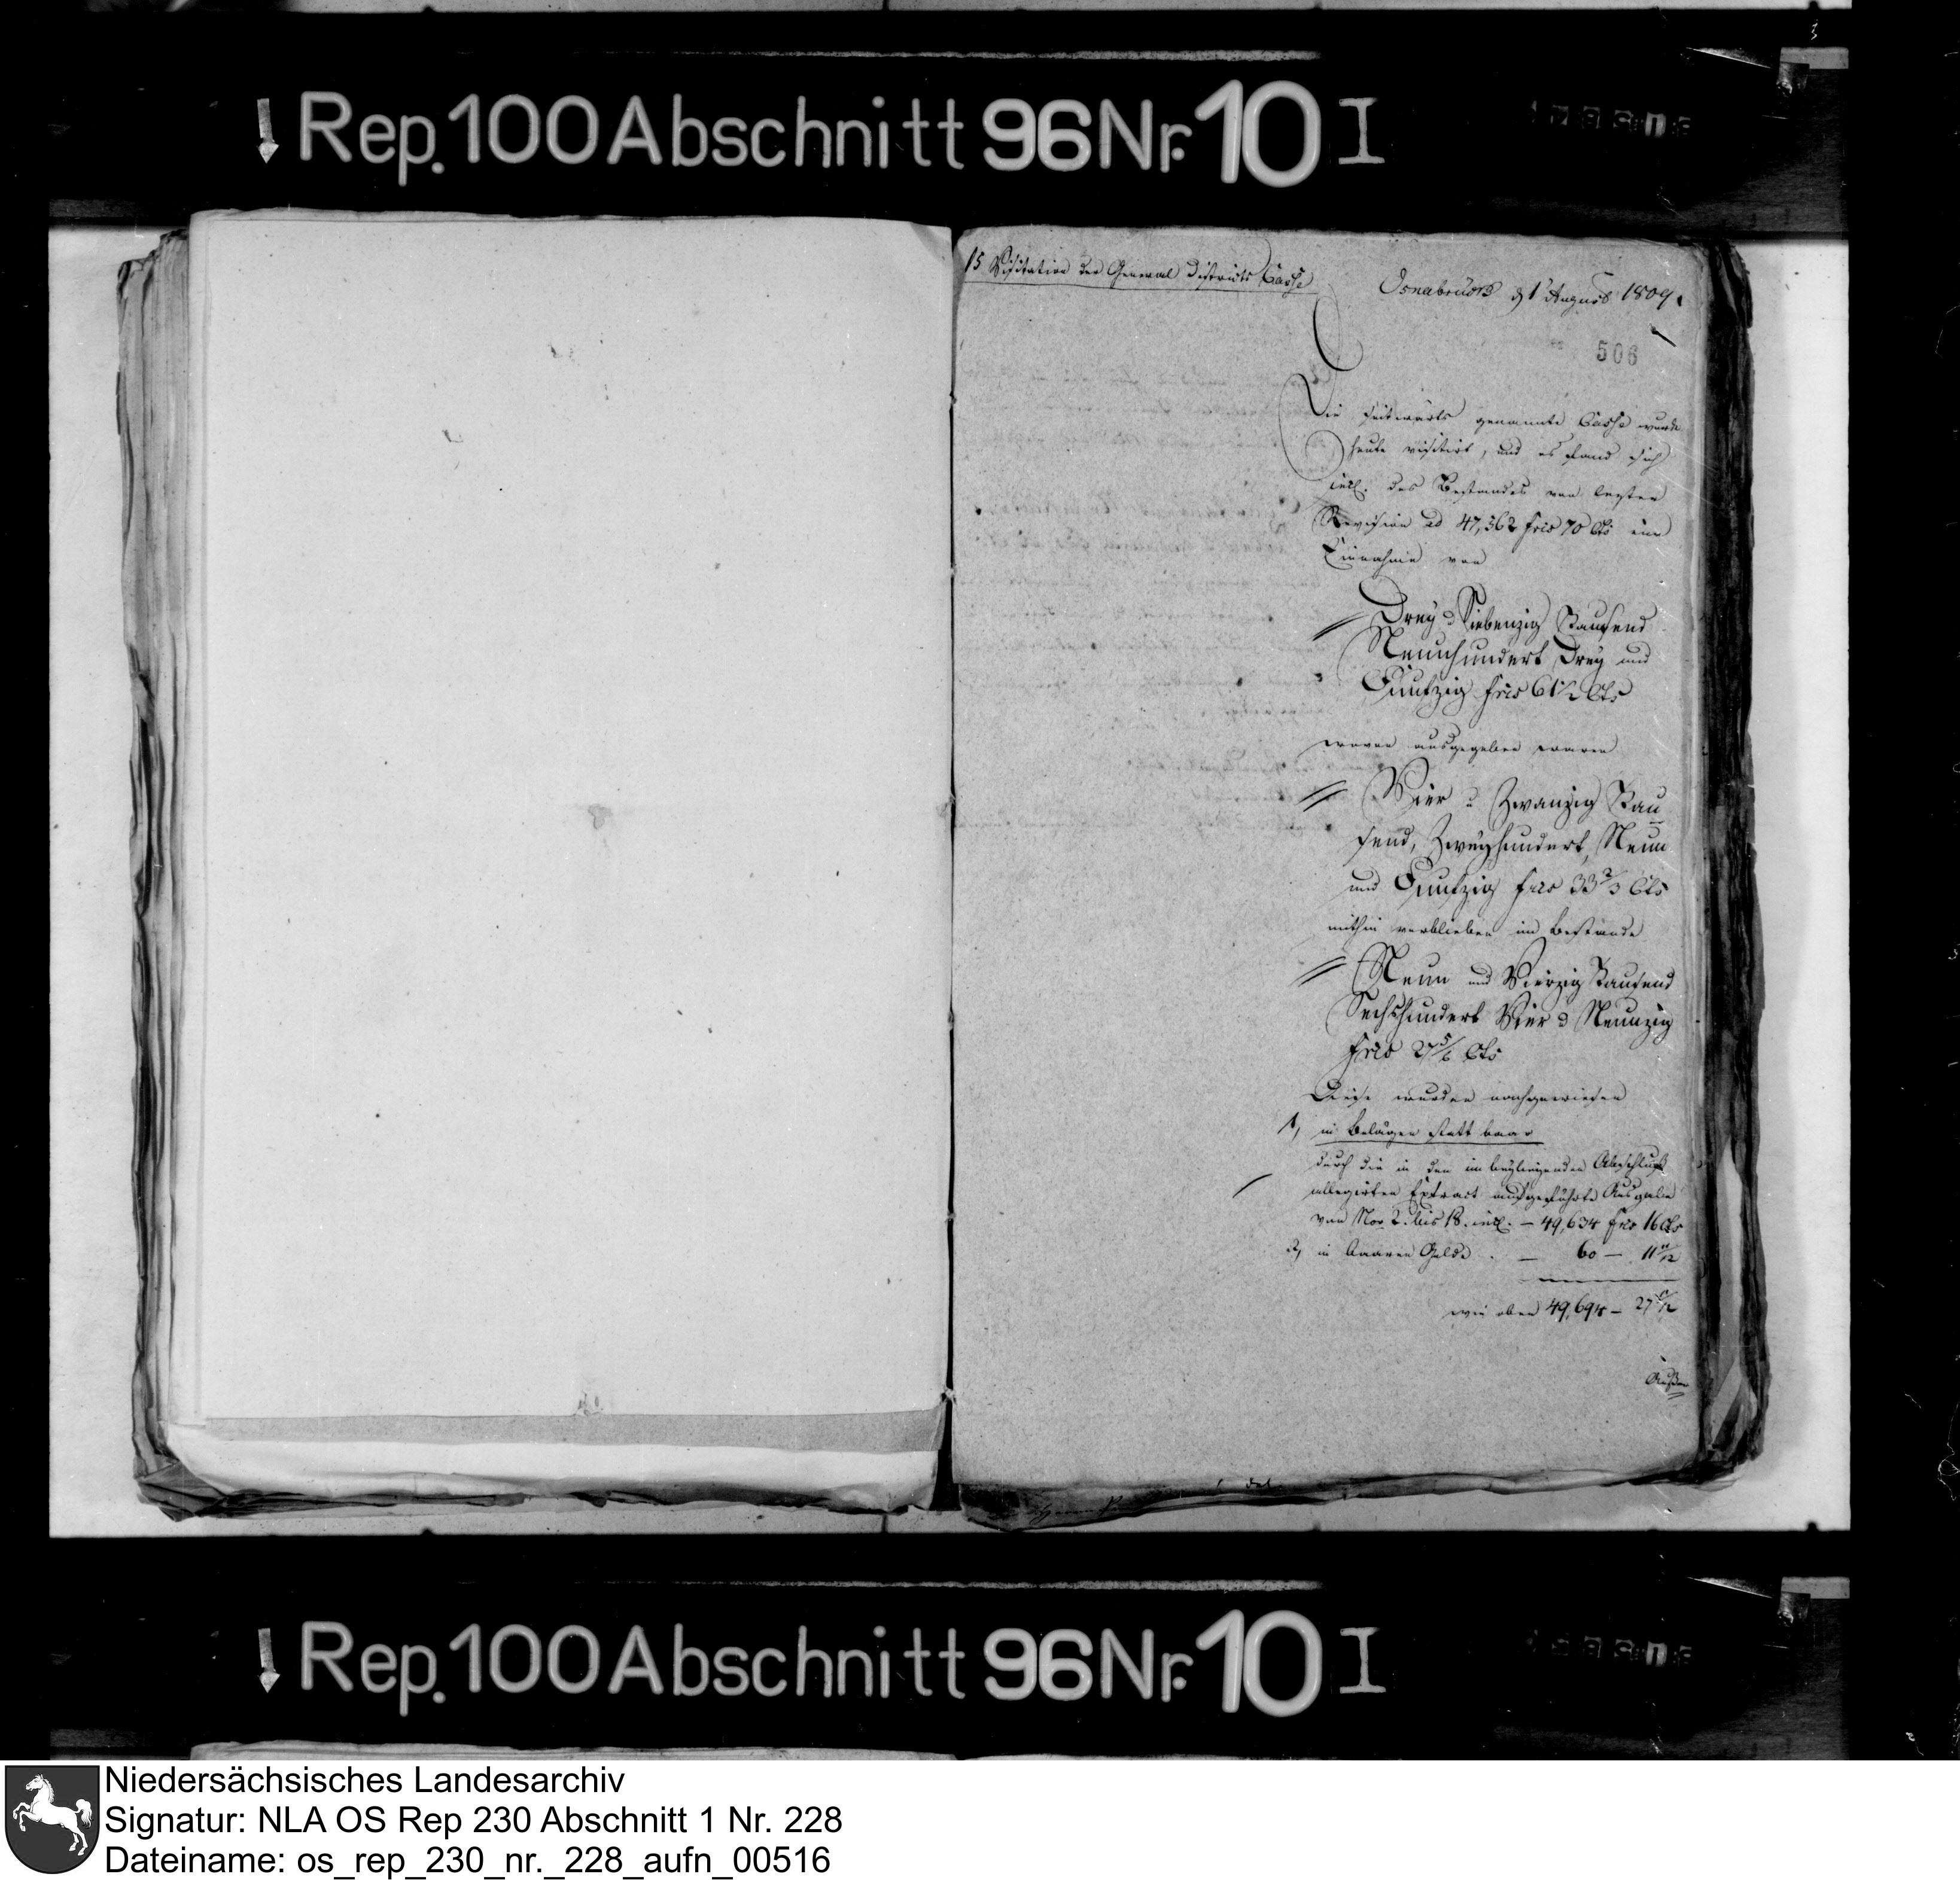 Rep. 100 Abschnitt 96 Nr. 10 I
15 Visitation der General Districts Casse
Osnabrück d 1t August 1809.
506
Die seitwärts genannte Casse wurde
heute visitirt, und es fand sich
incl. des Bestandes von letzter
Revision ad 47,362 frcs 70 Cts eine
Einnahme von
Drey u Siebenzig Tausend
Neunhundert Drey und
Funfzig frcs 61½ Cts
wovon ausgegeben waren
Vier u Zwanzig Tau
send, Zweyhundert, Neun
und Funfzig frcs 33⅔ Cts
mithin verblieben im Bestande
Neun und Vierzig Tausend
Sechshundert Vier u Neunzig
frcs 27 5/6 Cts
Diese wurden nachgewiesen
1, in Belägen statt baar
durch die in den im beyliegenden Abschluß
allegirten Extract aufgeführte Ausgabe
von Nor. 2. bis 18. incl. – 49,634 frcs 16 Cts
2, in baaren Gelde . – 60 – 11 11/12
wie oben 49,694 – 27 11/12
Außer
Rep. 100 Abschnitt 96 Nr. 10 I
Niedersächsisches Landesarchiv
Signatur: NLA OS Rep 230 Abschnitt 1 Nr. 228
Dateiname: os_rep_230_nr._228_aufn_00516